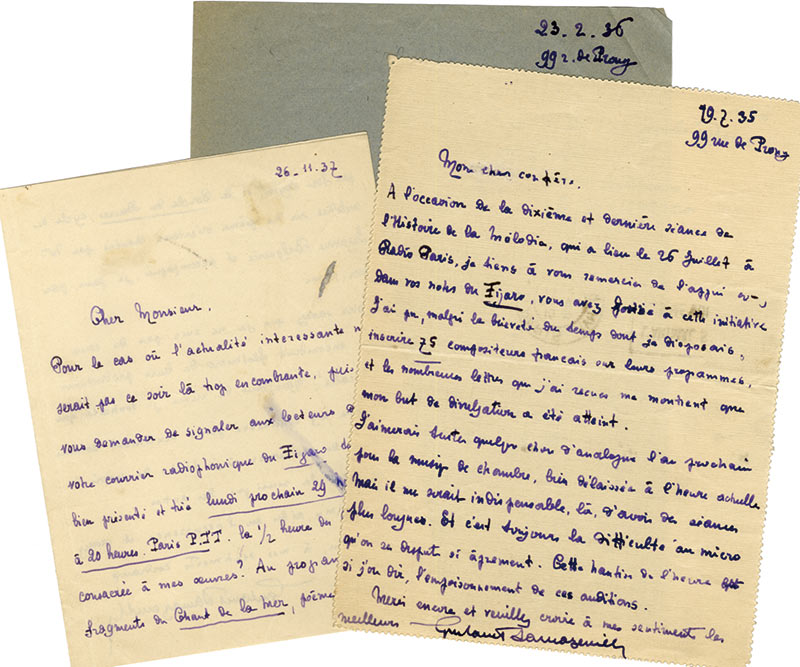 23.2.36
99 r. de Prony
26.11.37
Cher Monsieur,
Pour le cas où l'actualité intéressante n
serait pas ce soir là trop encombrante, puis
vous demander de signaler aux lecteurs d
votre courrier radiophonique du Figaro
bien présenté et très lundi prochain 29
à 20 heures. Paris P.T.T. la 1/2 heure du
consacrée à mes œuvres? Au program
fragments du Chant de la Mer, poème
19.7.35
99 rue de Prony
Mon cher confrère,
A l'occasion de la dixième et dernière séance de
l'Histoire de la Mélodie, qui a lieu le 26 Juillet à
Radio Paris, je tiens à vous remercier de l'appui que,
dans vos notes du Figaro, vous avez
à cette initiative
J'ai pu, malgré la brièveté du temps dont je disposais,
inscrire 75 compositeurs français sur leurs programmes,
et les nombreuses lettres que j'ai reçues me montrent que
mon but de divulgation a été atteint.
J'aimerais tenter quelque chose d'analogue l'an prochain
pour la musique de chambre, bien délaissée à l'heure actuelle
Mais il me serait indispensable, là, d'avoir des séances
plus longues. Et c'est toujours la difficulté au micro
qu'on se dispute si âprement. Cette hantise de l'heure est
si j'ose dire, l'empoisonnement de ces auditions.
Merci encore et veuillez croire à mes sentiments les
meilleurs
Gustave Samazeuilh